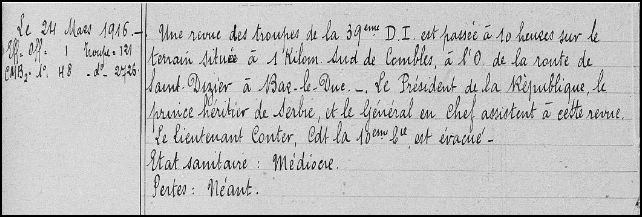 Le 24 Mars 1916._
Eff. Off. 1 Troupe = 121
CMB2. do. 48 - do. 2726.
Une revue des troupes de la 39eme D.I. est passée à 10 heures sur le
terrain située à 1 Kilom. Sud de Combles, à l'O. de la route de
Saint-Dizier à Bar-le-Duc._ Le Président de la République, le
prince héritier de Serbie, et le Général en Chef assistent à cette revue.
Le Lieutenant Conter, Cdt la 10eme Cie est évacué_
Etat sanitaire : Médiocre.
Pertes: Néant.